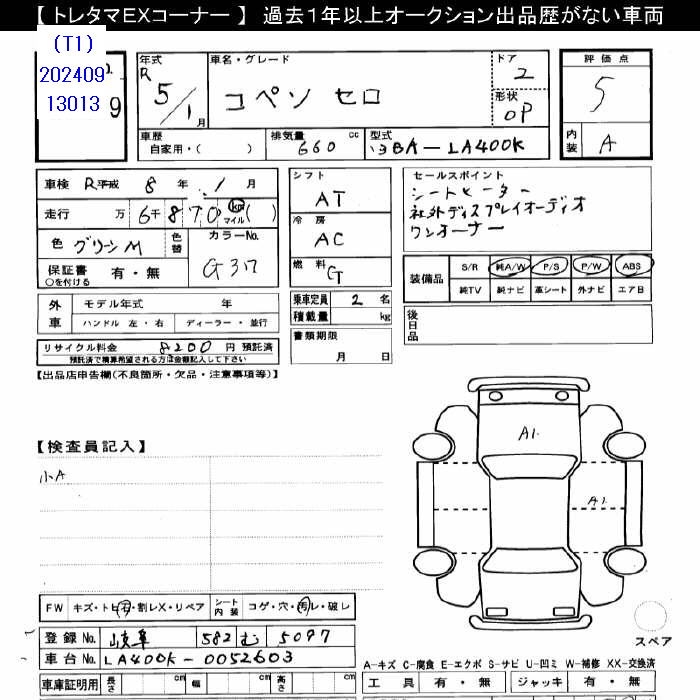 【 トレタマEXコーナー 】 過去１年以上オークション出品歴がない車両
(T1)
202409
13013
9
年式 R 5/1月
車名・グレード コペン セロ
ドア 2
形状 OP
評価点 5
内装 A
車歴 自家用・( )
排気量 660 cc
型式 3BA-LA400K
車検 R平成 8年 1月
走行 万 6千 8 7 0 km マイル ( )
色 グリーンM 色替 カラーNo. G37
保証書 有・無
○を付ける
外車 モデル年式 年
ハンドル 左・右 ディーラー・並行
リサイクル料金 8200 円 預託済
預託済で積算希望される方は金額記入して下さい
シフト AT
冷房 AC
燃料 G
乗車定員 2 名
積載量 kg
書類期限
月 日
セールスポイント
シートヒーター
社外ディスプレイオーディオ
ワンオーナー
装備品 S/R 純A/W P/S P/W ABS
純TV 純ナビ 革シート 外ナビ エアB
後日品
【出品店申告欄(不良箇所・欠品・注意事項等)】
【検査員記入】
小A
A1.
A1.
FW キズ・トビ石・割レX・リペア シート内装 コゲ・穴・汚レ・破レ
登録 No. 岐阜 582 む 5097
車台 No. LA400K-0052603
車庫証明用 長さ cm 幅 cm 高さ cm
スペア
A-キズ C-腐食 E-エクボ S-サビ U-凹ミ W-補修 XX-交換済
工具 有・無 ジャッキ 有・無